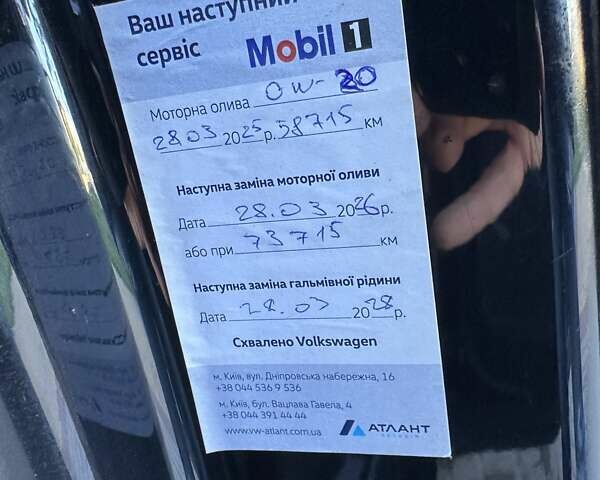 Ваш наступний
сервіс Mobil 1
Моторна олива 0W-20
28.03 2025 р. 58715 км
Наступна заміна моторної оливи
Дата 28.03 2026 р.
або при 73715 км
Наступна заміна гальмівної рідини
Дата 28.03 2028 р.
Схвалено Volkswagen
м. Київ, вул. Дніпровська набережна, 16
+38 044 536 9 536
м. Київ, бул. Вацлава Гавела, 4
+38 044 391 44 44
www.vw-atlant.com.ua
АТЛАНТ